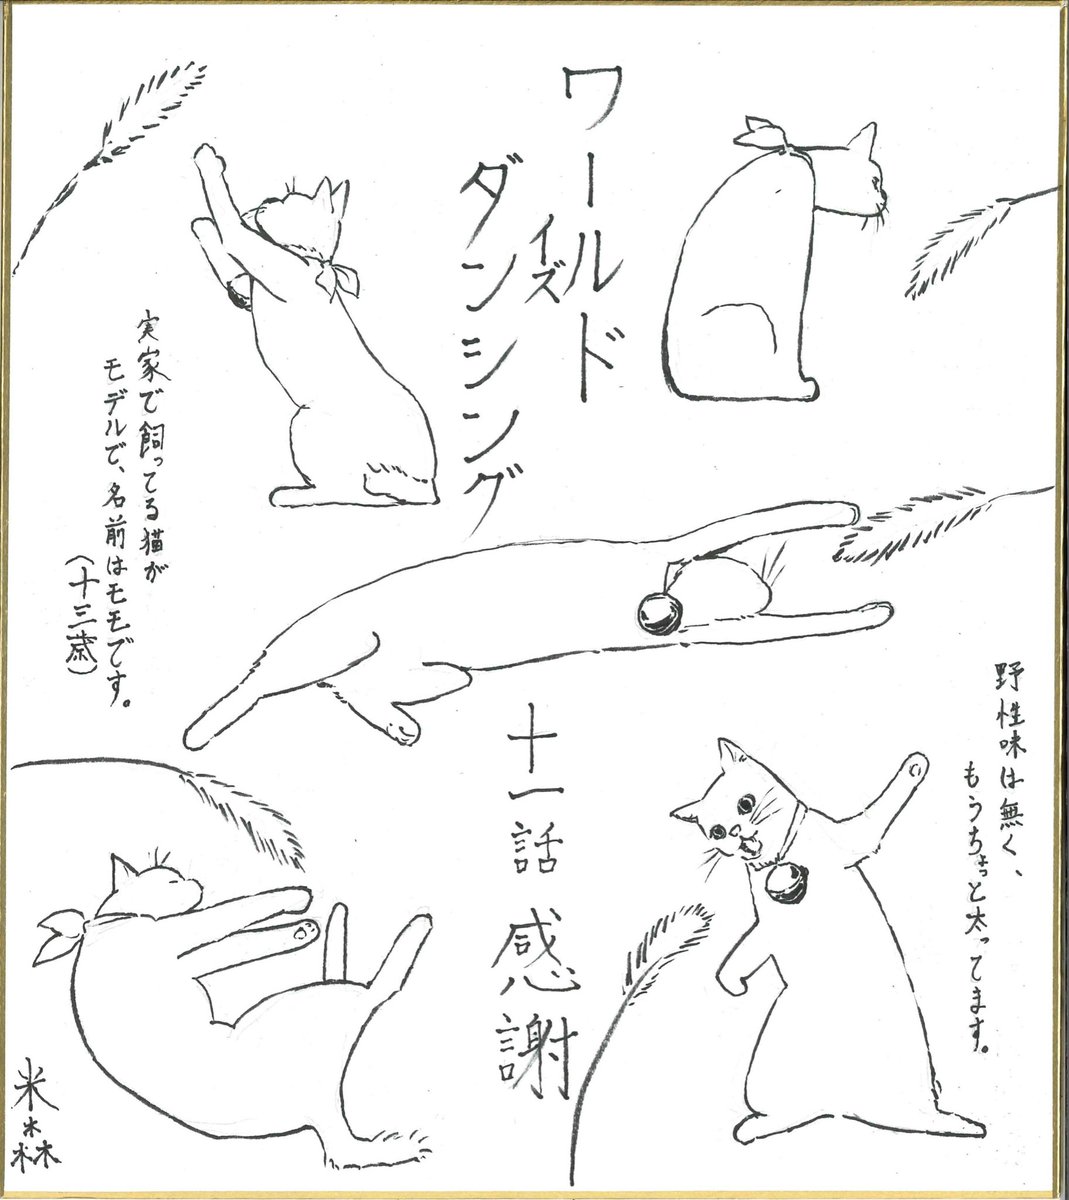 ワールド
イズ
ダンシング
十一話 感謝
実家で飼ってる猫が
モデルで、名前はモモです。
(十三歳)
野性味は無く、
もうちょっと太ってます。
米森